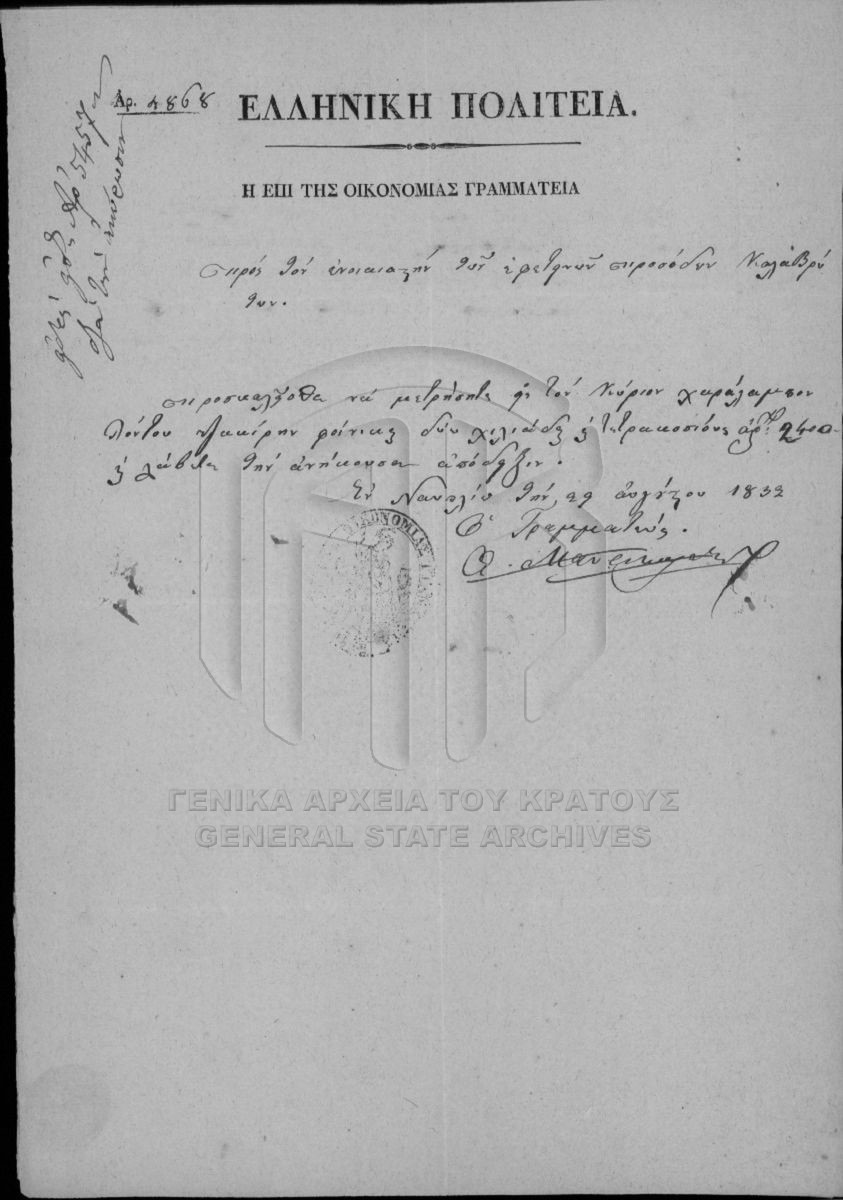 Ἀρ. 4868
ΕΛΛΗΝΙΚΗ ΠΟΛΙΤΕΙΑ.
Η ΕΠΙ ΤΗΣ ΟΙΚΟΝΟΜΙΑΣ ΓΡΑΜΜΑΤΕΙΑ
πρὸς τὸν ἐνοικιαστὴν τῶν ἐφετεινῶν προσόδων Καλαβρύ
των.
προσκαλεῖσθε νὰ μετρήσητε εἰς τὸν Κύριον χαράλαμπον
φοίνικας δύω χιλιάδας καὶ τετρακοσίους ἀρ. 2400
καὶ λάβετε τὴν ἀνήκουσαν ἀπόδειξιν.
Ἐν Ναυπλίῳ τὴν 29 αὐγούστου 1832
Ὁ Γραμματεὺς.
ΟΙΚΟΝΟΜΙΑΣ
ΓΕΝΙΚΑ ΑΡΧΕΙΑ ΤΟΥ ΚΡΑΤΟΥΣ
GENERAL STATE ARCHIVES